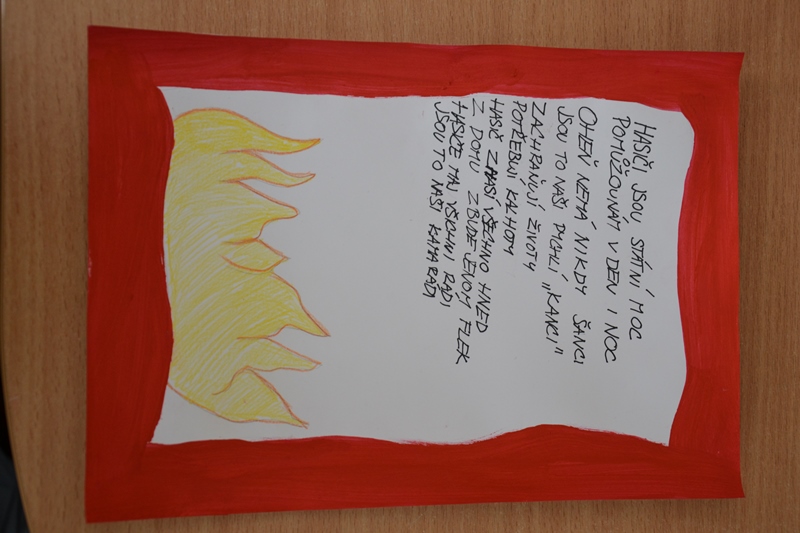 HASIČI JSOU STÁTNÍ MOC
POMŮŽOUNÁM V DEN I NOC
OHEŇ NEMÁ NIKDY ŠANCI
JSOU TO NAŠI RYCHLÍ „KANCI"
ZACHRAŇUJÍ ŽIVOTY
POTŘEBUJÍ KALHOTY
HASIČ ZHASÍ VŠECHNO HNED
Z DOMU ZBUDE JENOM FLEK
HASIČE MAJ VŠICHNI RÁDI
JSOU TO NAŠI KAMARÁDI